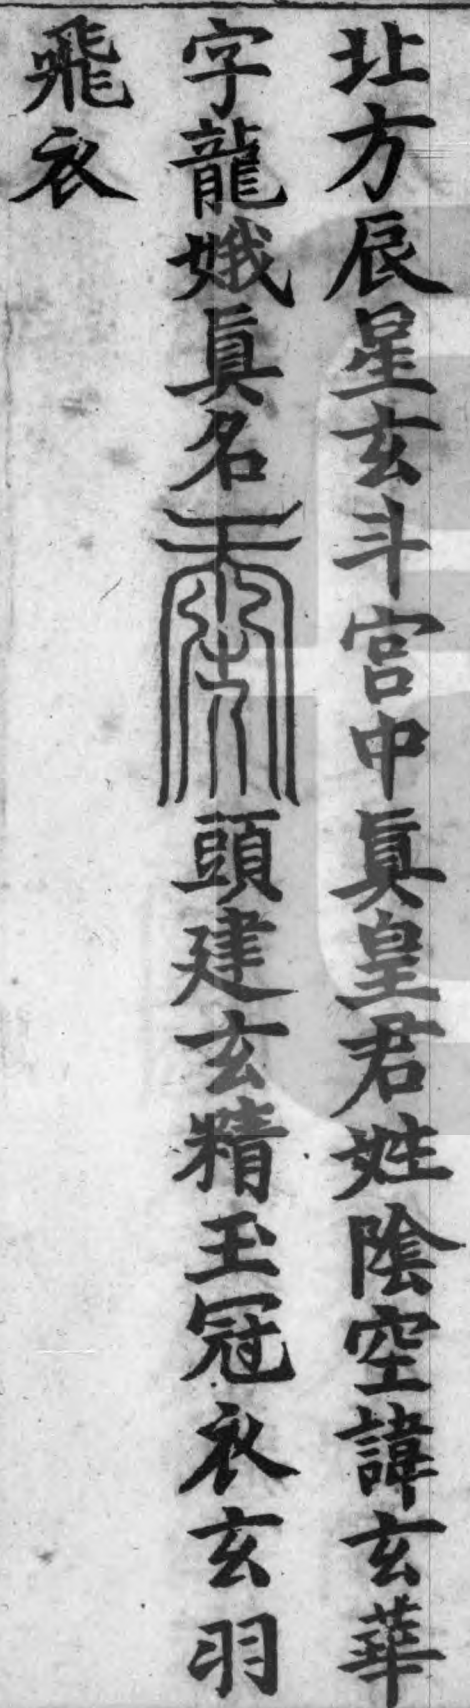 北方辰星玄斗宫中眞皇君姓陰空諱玄華
字龍娥眞名頭建玄精玉冠衣玄羽
飛衣